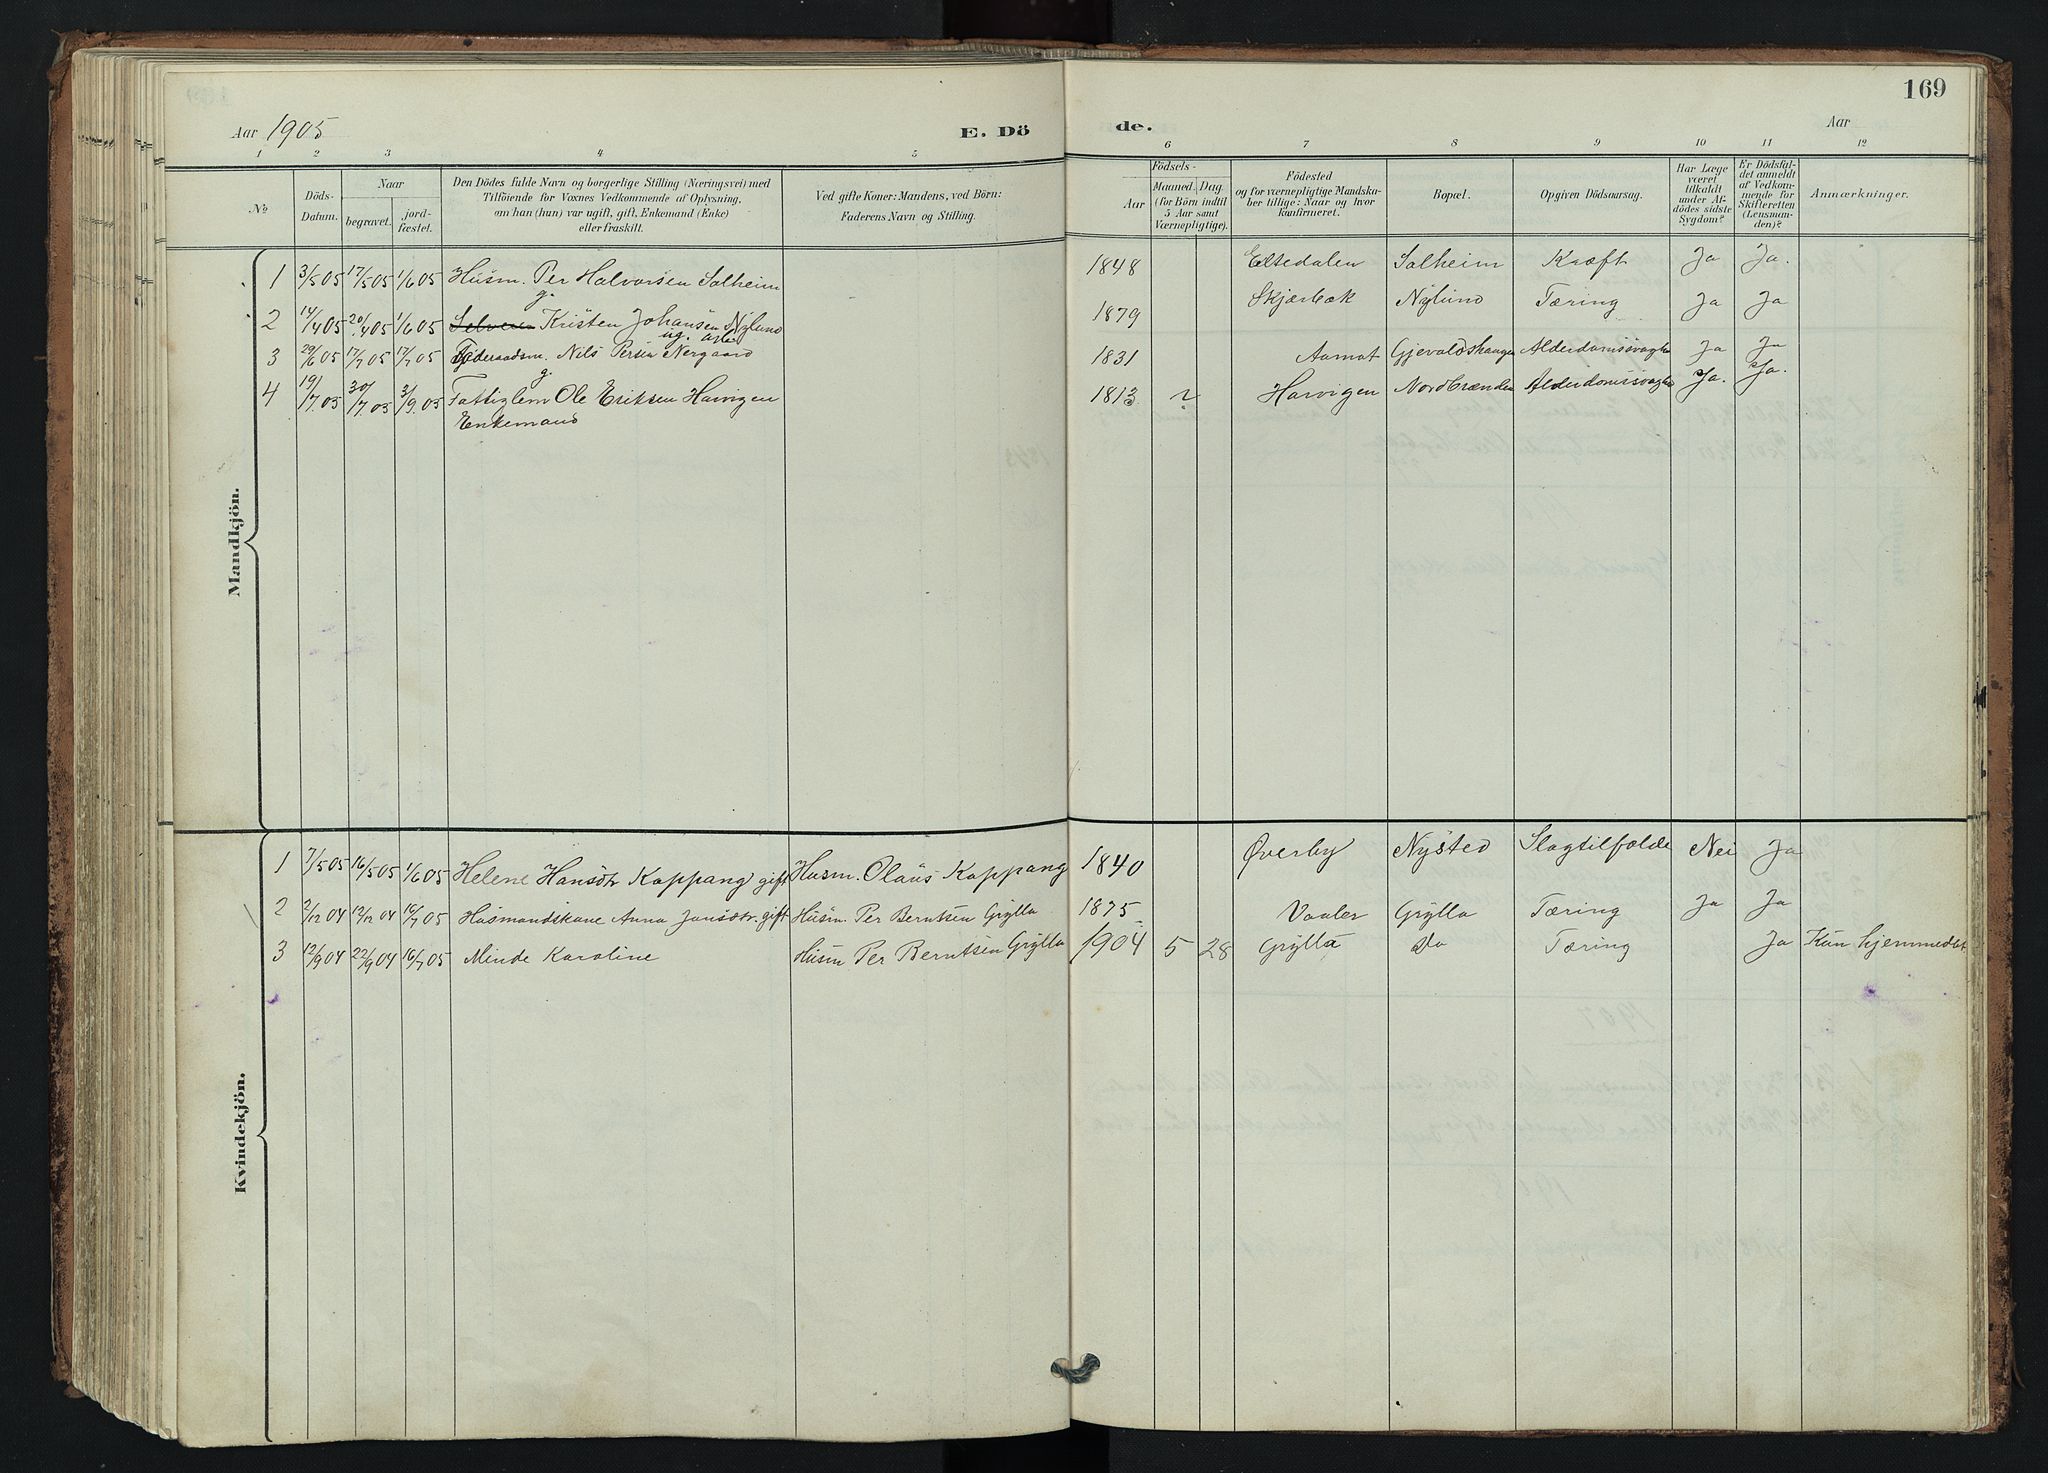 169
Aar 1905
E. Dö
de.
Aar
1 2 3 4 5 6 7 8 9 10 11 12
No
Döds-
Datum.
Naar
begravet.
jord-
fæstet.
Den Dödes fulde Navn og borgerlige Stilling (Næringsvei) med
Tilföiende for Voxnes Vedkommende af Oplysning,
om han (hun) var ugift, gift, Enkemand (Enke)
eller fraskilt.
Ved gifte Koner: Mandens, ved Börn:
Faderens Navn og Stilling.
Födsels-
Aar
Maaned. Dag.
(for Börn indtil
5 Aar samt
Værnepligtige).
Födested
og for værnepligtige Mandska-
ber tillige: Naar og hvor
konfirmeret.
Bopæl.
Opgiven Dödsaarsag.
Har Læge
været
tilkaldt
under Af-
dödes sidste
Sygdom?
Er Dödsfal-
det anmeldt
af Vedkom-
mende for
Skifteretten
(Lensman-
den)?
Anmærkninger.
Mandkjön.
1 3/5 05 17/5 05 1/6 05 Husm. Per Halvorsen Solheim 1848 Eltedalen Solheim Kræft Ja Ja.
g.
2 14/4 05 20/4 05 1/6 05 Kristen Johansen Nylund 1879 Skjærbæk Nylund Tæring Ja Ja
ug. arb
3 29/6 05 17/7 05 17/7 05 Føderaadsm. Nils Persen Nergaard 1831 Aamot Gjevaldshaugen Alderdomssvaghe Ja Ja
g.
4 19/7 05 30/7 05 3/9 05 Fattiglem Ole Eriksen Harvigen 1813 ? Harvigen Nordbrænden Alderdomssvaghe Ja. Ja.
Enkemand
Kvindekjön.
1 7/5 05 16/5 05 1/6 05 Helene Hansdtr Koppang gift Husm. Olaus Koppang 1840 Øverby Nysted Slagtilfælde Nei Ja
2 2/12 04 12/12 04 16/7 05 Husmandskone Anna Jonsdtr. gift Husm. Per Berntsen Grylla 1875 Vaaler Grylla Tæring Ja Ja
3 12/9 04 22/9 04 16/7 05 Minde Karoline Husm Per Berntsen Grylla 1904 5 28 Grylla Do Tæring Ja Kun hjemmedbt.